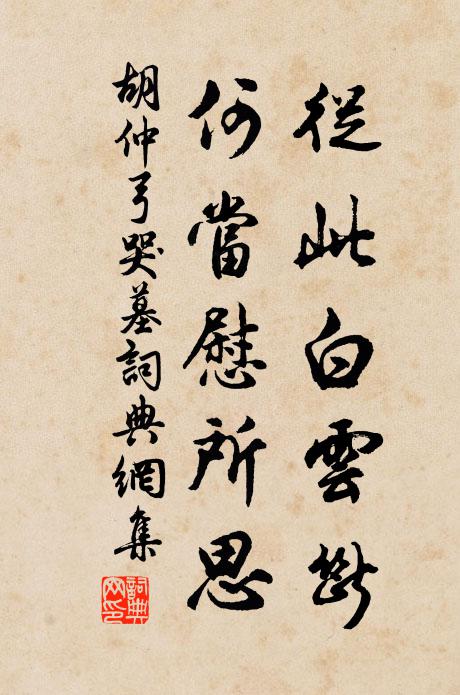 從此白雲斷
何當慰所思
胡仲弓哭墓詞典網集
詞典网印